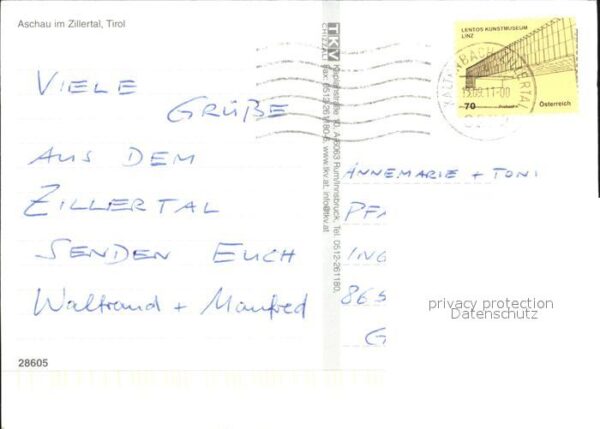 Aschau im Zillertal, Tirol
VIELE
GRÜßE
AUS DEM
ZILLERTAL
SENDEN EUCH
Waltraud + Manfred
28605
TKV
A-6063 Rum/Innsbruck, Tel. 0512-261180,
Fax: 0512-261180-5, www.tkv.at, info@tkv.at
LENTOS KUNSTMUSEUM
LINZ
70
Österreich
KALTENBACH ZILLERTAL
13.09.11-00
ANNEMARIE + TONI
PFA
ING
865
G
privacy protection
Datenschutz